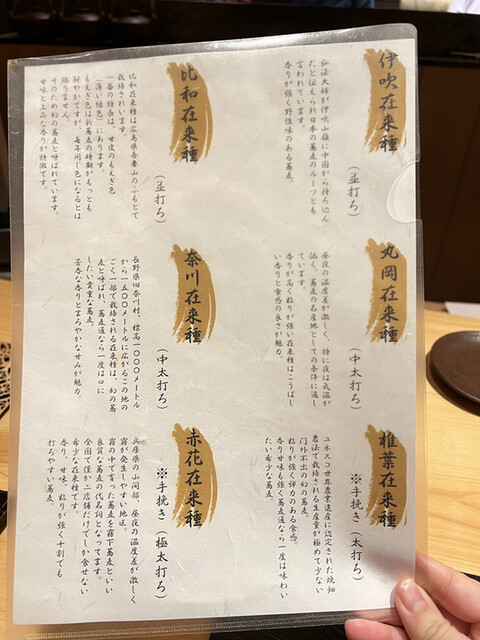 伊吹在来種
（並打ち）
弘法大師が伊吹山嶺に中国から持ち込ん
だと伝えられ日本の蕎麦のルーツとも
言われています。
香りが強く野性味のある蕎麦。
比和在来種
（並打ち）
比和在来種は広島県吾妻山のふもとで
栽培されています。
一番の特長は、甘皮のもえぎ色
（薄い緑色）にあります。
もえぎ色は新蕎麦の時期がもっとも
鮮やかですが、毎年同じ色になるとは
限りません。
そのため幻の蕎麦と呼ばれています。
甘味と上品な香りが特徴です。
丸岡在来種
（中太打ち）
昼夜の温度差が激しく、特に夜は気温が
低く、蕎麦の名産地としての条件に適し
ています。
香りが高く粘りが強い在来種はこうばし
い香りと食感の良さが魅力。
奈川在来種
（中太打ち）
長野県旧奈川村、標高一〇〇〇メートル
から一五〇〇メートルに広がるこの地の
ごく一部で栽培される在来種は、幻の蕎
麦と呼ばれ、蕎麦通なら一度は口に
したい貴重な蕎麦。
芳香な香りとまろやかな甘みが魅力。
椎葉在来種
※手挽き（太打ち）
ユネスコ世界農業遺産に認定された焼畑
農法で栽培される生産量が極めて少ない
門外不出の幻の蕎麦。
粘りが強く弾力のある食感。
香り甘味も強く蕎麦通なら一度は味わい
たい希少な蕎麦。
赤花在来種
※手挽き（極太打ち）
兵庫県の山間部、昼夜の温度差が激しく
霧が発生しやすい地区。
霧の中で育った蕎麦を霧下蕎麦といい
良質な蕎麦の代名詞となってます。
全国で僅か二店舗だけでしか食せない
希少な在来種です。
香り、甘味、粘りが強く十割でも
打ちやすい蕎麦。